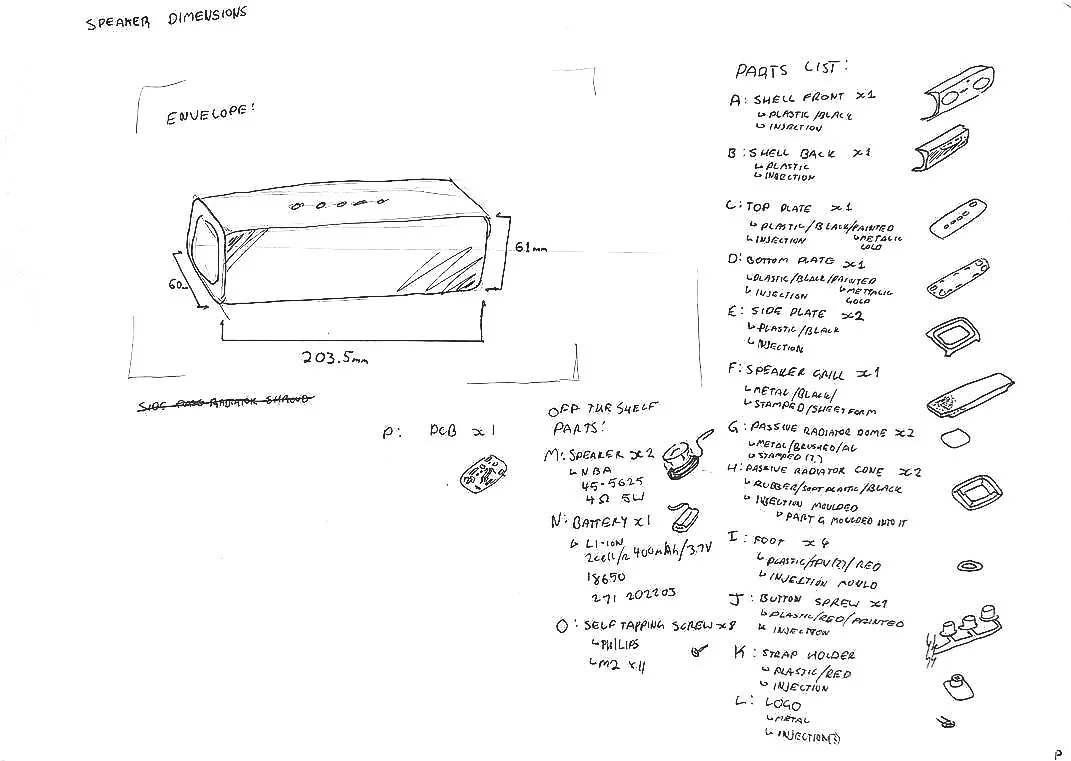 SPEAKER DIMENSIONS
ENVELOPE:
61mm
60
203.5mm
SIDE PASS RADIATOR SHROUD
P: PCB x1
OFF THE SHELF
PARTS:
M: SPEAKER x2
↳ NBA
45-5625
4Ω 5W
N: BATTERY x1
↳ LI-ION
2cell/2400mAh/3.7V
18650
271 202203
O: SELF TAPPING SCREW x8
↳ PHILIPS
↳ M2 x4
PARTS LIST:
A: SHELL FRONT x1
↳ PLASTIC/BLACK
↳ INJECTION
B: SHELL BACK x1
↳ PLASTIC
↳ INJECTION
C: TOP PLATE x1
↳ PLASTIC/BLACK/PAINTED
↳ INJECTION ↳ METALIC
GOLD
D: BOTTOM PLATE x1
↳ PLASTIC/BLACK/PAINTED
↳ INJECTION ↳ METTALIC
GOLD
E: SIDE PLATE x2
↳ PLASTIC/BLACK
↳ INJECTION
F: SPEAKER GRILL x1
↳ METAL/BLACK/
↳ STAMPED/SHEET FORM
G: PASSIVE RADIATOR DOME x2
↳ METAL/BRUSHED/AL
↳ STAMPED (?)
H: PASSIVE RADIATOR CONE x2
↳ RUBBER/SOFT PLASTIC/BLACK
↳ INJECTION MOULDED
↳ PART G MOULDED INTO IT
I: FOOT x4
↳ PLASTIC/TPU(?)/RED
↳ INJECTION MOULD
J: BUTTON SPREW x1
↳ PLASTIC/RED/PAINTED
↳ INJECTION
K: STRAP HOLDER
↳ PLASTIC/RED
↳ INJECTION
L: LOGO
↳ METAL
↳ INJECTION(?)
P